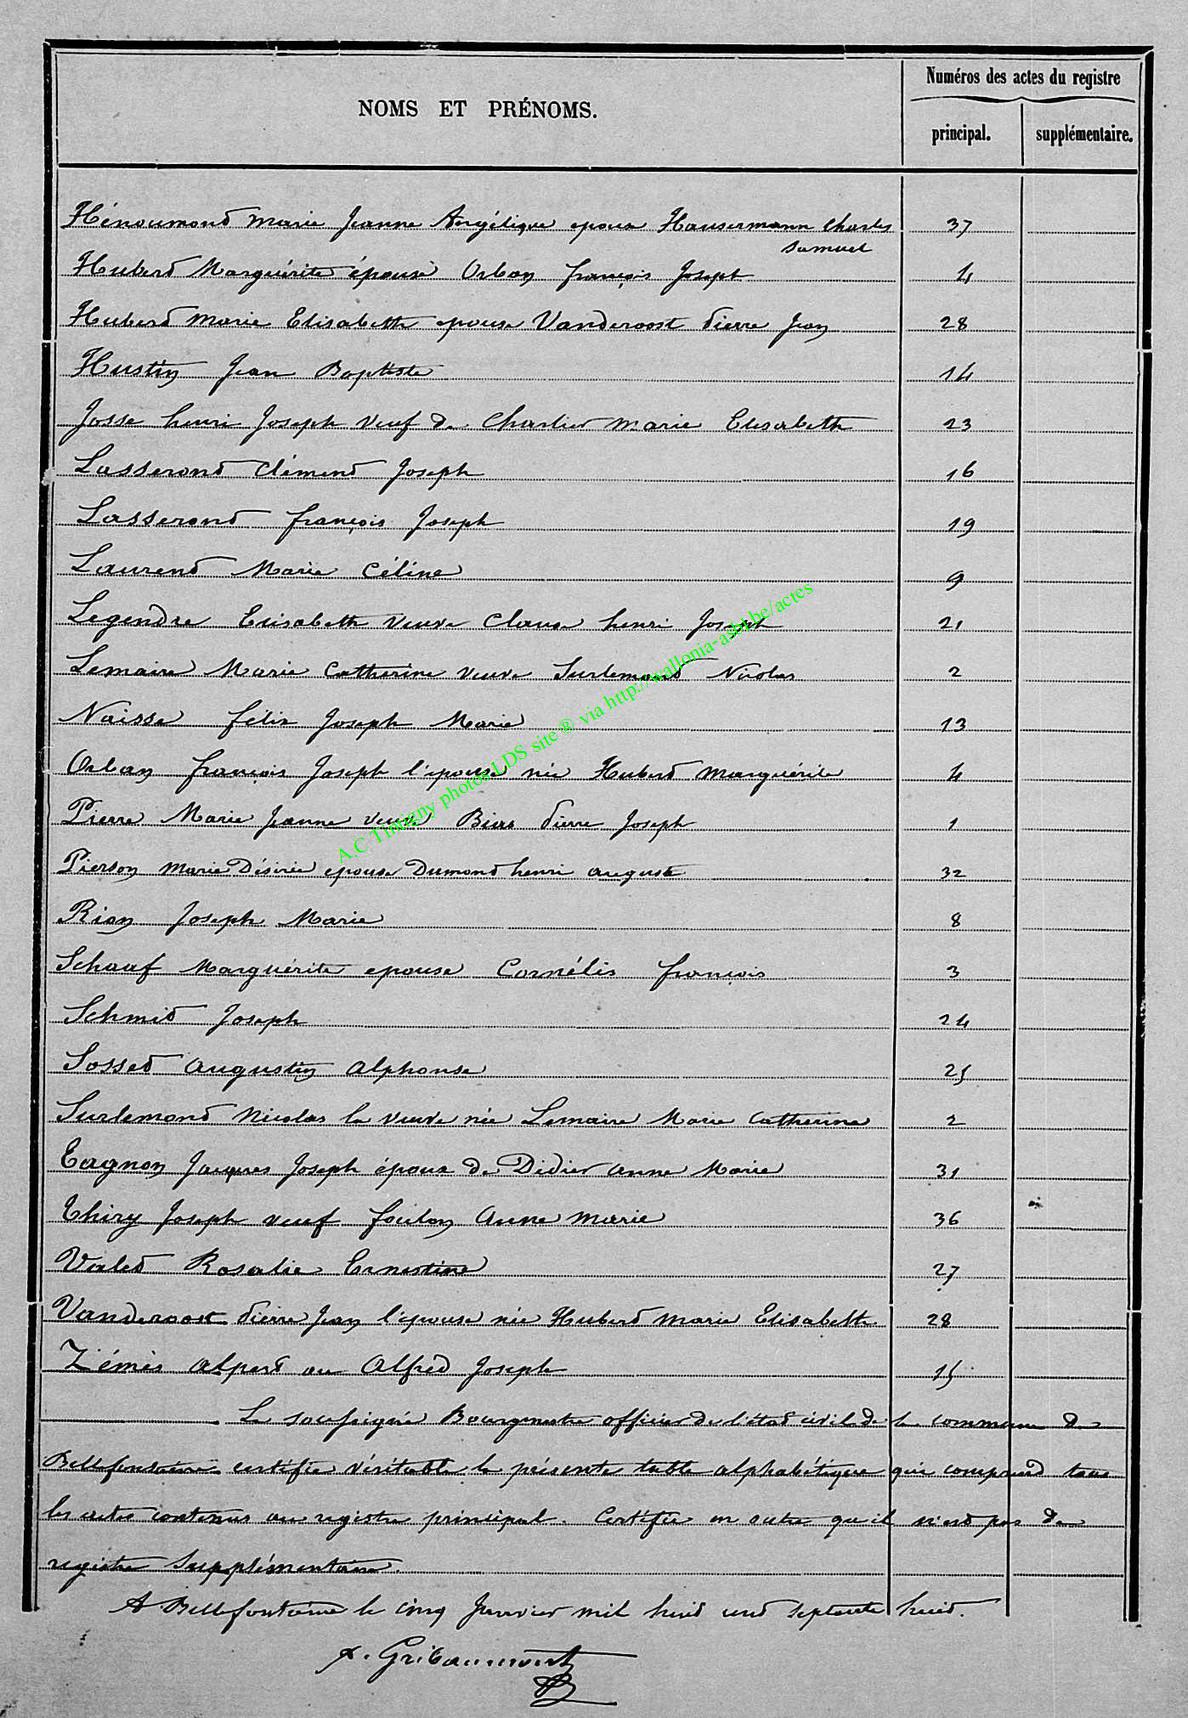 Numéros des actes du registre
NOMS ET PRÉNOMS.
principal. supplémentaire.
Hénoumont Marie Jeanne Angélique epoux Hausermann Charles 37
Samuel
Hubert Marguérite épouse Orban françois Joseph 4
Hubert Marie Elisabeth epouse Vanderoost Pierre Jean 28
Hustin Jean Baptiste 14
Josse henri Joseph veuf de Charlier Marie Elisabeth 23
Lasserond Clément Joseph 16
Lasserond françois Joseph 19
Laurend Marie Céline 9
Legendre Elisabeth veuve Claus henri Joseph 21
Lemaire Marie Catherine veuve Surlemont Nicolas 2
Naisse félix Joseph Marie 13
Orban françois Joseph l'épouse née Hubert Marguérite 4
Pierre Marie Jeanne veuve Pierre Joseph 1
Pierson Marie Désirée epouse Dumont henri auguste 32
Rion Joseph Marie 8
Schauf Marguérite epouse Cornélis françois 3
Schmit Joseph 24
Sosset Augustin Alphonse 25
Surlemont Nicolas la veuve née Lemaire Marie Catherine 2
Tagnon Jacques Joseph époux de Didier Anne Marie 31
Thiry Joseph veuf foulon Anne Marie 36
Valet Rosalie Ernestine 27
Vanderoost Pierre Jean l'épouse née Hubert Marie Elisabeth 28
Zémès alpert ou Alfred Joseph 15
Le soussigné Bourgmestre officier de l'état civil de la commune de
Bellefontaine certifie véritable la présente table alphabétique qui comprend tous
les actes contenus au registre principal. Certifie en outre qu'il n'est pas de
registre supplémentaire.
A Bellefontaine le cinq Janvier mil huit cent septante huit.
A. Gribaumont
A.C Tintigny photos LDS site ® via http://wallonia-asbl.be/actes